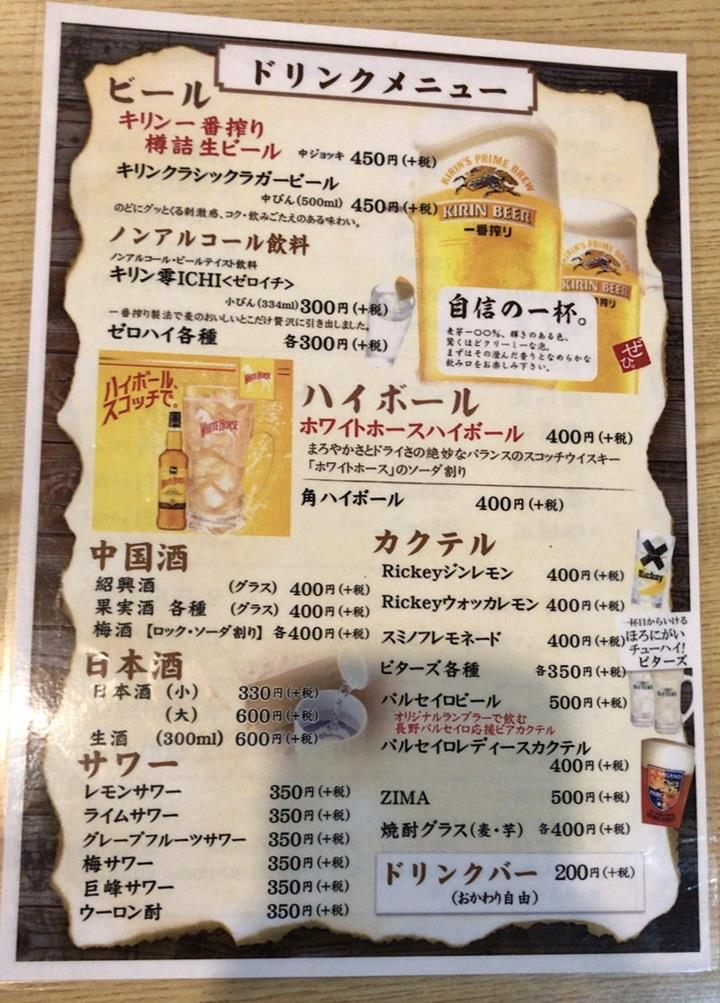 ドリンクメニュー
ビール
キリン一番搾り
樽詰生ビール 中ジョッキ 450円(+税)
キリンクラシックラガービール
中びん(500ml) 450円(+税)
のどにグッとくる刺激感、コク・飲みごたえのある味わい。
ノンアルコール飲料
ノンアルコール・ビールテイスト飲料
キリン零ICHI<ゼロイチ>
小びん(334ml) 300円(+税)
一番搾り製法で麦のおいしいとこだけ贅沢に引き出しました。
ゼロハイ各種 各300円(+税)
KIRIN'S PRIME BREW
KIRIN BEER
一番搾り
KIRIN'S PRIME BREW
KIRIN BEER
一番搾り
自信の一杯。
麦芽一〇〇%、輝きのある色、
驚くほどクリーミーな泡。
まずはその澄んだ香りとなめらかな
飲み口をお楽しみ下さい。
ぜひ。
ハイボール、
スコッチで。
WHITE HORSE
WHITE HORSE
WHITE HORSE
ハイボール
ホワイトホースハイボール 400円(+税)
まろやかさとドライさの絶妙なバランスのスコッチウイスキー
「ホワイトホース」のソーダ割り
角ハイボール 400円(+税)
中国酒
紹興酒 (グラス) 400円(+税)
果実酒 各種 (グラス) 400円(+税)
梅酒 【ロック・ソーダ割り】 各400円(+税)
日本酒
日本酒 (小) 330円(+税)
(大) 600円(+税)
生酒 (300ml) 600円(+税)
サワー
レモンサワー 350円(+税)
ライムサワー 350円(+税)
グレープフルーツサワー 350円(+税)
梅サワー 350円(+税)
巨峰サワー 350円(+税)
ウーロン酎 350円(+税)
カクテル
Rickeyジンレモン 400円(+税)
Rickeyウォッカレモン 400円(+税)
スミノフレモネード 400円(+税)
ビターズ各種 各350円(+税)
パルセイロビール 500円(+税)
オリジナルタンブラーで飲む
長野パルセイロ応援ビアカクテル
パルセイロレディースカクテル
400円(+税)
ZIMA 500円(+税)
焼酎グラス(麦・芋) 各400円(+税)
Rickey
一杯目からいける
ほろにがい
チューハイ!
ビターズ
ドリンクバー 200円(+税)
(おかわり自由)